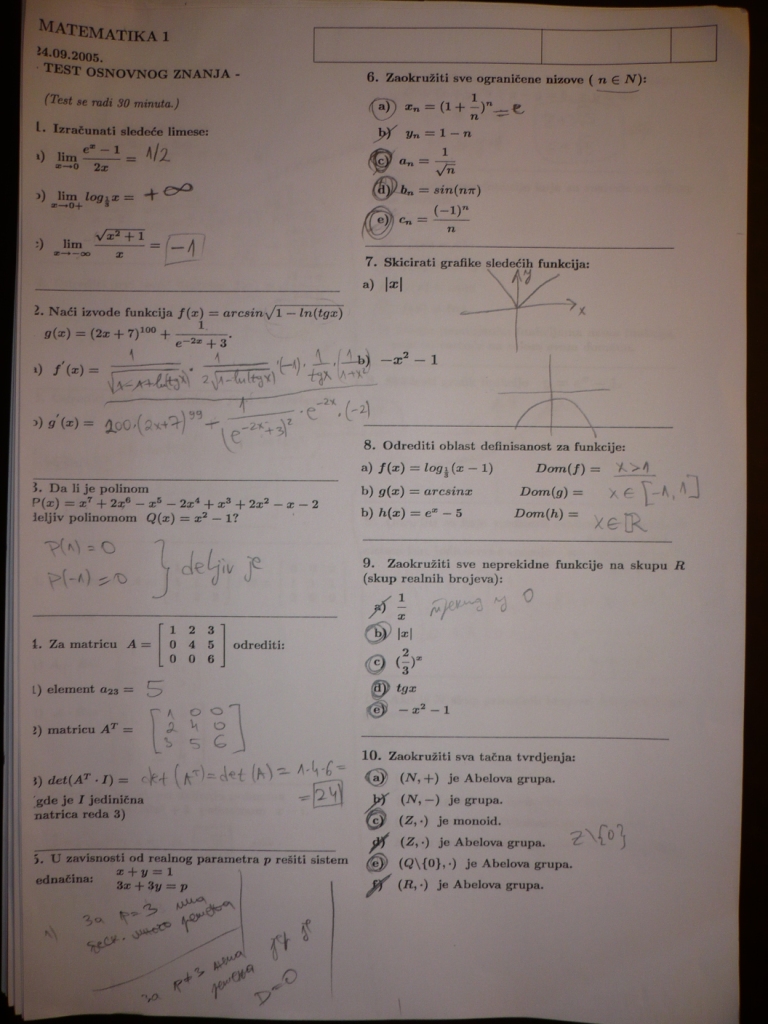 MATEMATIKA 1
24.09.2005.
- TEST OSNOVNOG ZNANJA -
(Test se radi 30 minuta.)
1. Izračunati sledeće limese:
lim x→0 (e^x − 1)/(2x) = 1/2
lim x→0+ log_{1/3} x = +∞
lim x→−∞ √(x² + 1)/x = −1
2. Naći izvode funkcija f(x) = arcsin√(1 − ln(tgx))
g(x) = (2x + 7)^100 + 1/(e^{−2x} + 3).
f'(x) = 1/√(1−1+ln(tgx)) · 1/(2√(1−ln(tgx))) ·(−1)· 1/tgx · (1/(1+x²)
g'(x) = 200·(2x+7)^99 + 1/(e^{−2x}+3)² · e^{−2x} · (−2)
3. Da li je polinom
P(x) = x^7 + 2x^6 − x^5 − 2x^4 + x^3 + 2x^2 − x − 2
deljiv polinomom Q(x) = x² − 1?
P(1) = 0
P(−1) = 0 } deljiv je
4. Za matricu A = [ 1 2 3
0 4 5
0 0 6 ] odrediti:
1) element a23 = 5
2) matricu A^T = [ 1 0 0
2 4 0
3 5 6 ]
3) det(A^T · I) = det(A^T) = det(A) = 1·4·6 =
= 24
gde je I jedinična
matrica reda 3)
5. U zavisnosti od realnog parametra p rešiti sistem
jednačina: x + y = 1
3x + 3y = p
1) За p=3 има
беск. много решења
За p≠3 нема
решења јер је
D=0
6. Zaokružiti sve ograničene nizove ( n ∈ N):
a) x_n = (1 + 1/n)^n = e
b) y_n = 1 − n
c) a_n = 1/√n
d) b_n = sin(nπ)
e) c_n = (−1)^n/n
7. Skicirati grafike sledećih funkcija:
a) |x|
y
x
b) −x² − 1
8. Odrediti oblast definisanost za funkcije:
a) f(x) = log_{1/3}(x − 1) Dom(f) = x>1
b) g(x) = arcsinx Dom(g) = x ∈ [−1, 1]
b) h(x) = e^x − 5 Dom(h) = x ∈ R
9. Zaokružiti sve neprekidne funkcije na skupu R
(skup realnih brojeva):
a) 1/x прекид у 0
b) |x|
c) (2/3)^x
d) tgx
e) −x² − 1
10. Zaokružiti sva tačna tvrdjenja:
a) (N, +) je Abelova grupa.
b) (N, −) je grupa.
c) (Z, ·) je monoid.
d) (Z, ·) je Abelova grupa. Z\{0}
e) (Q\{0}, ·) je Abelova grupa.
f) (R, ·) je Abelova grupa.